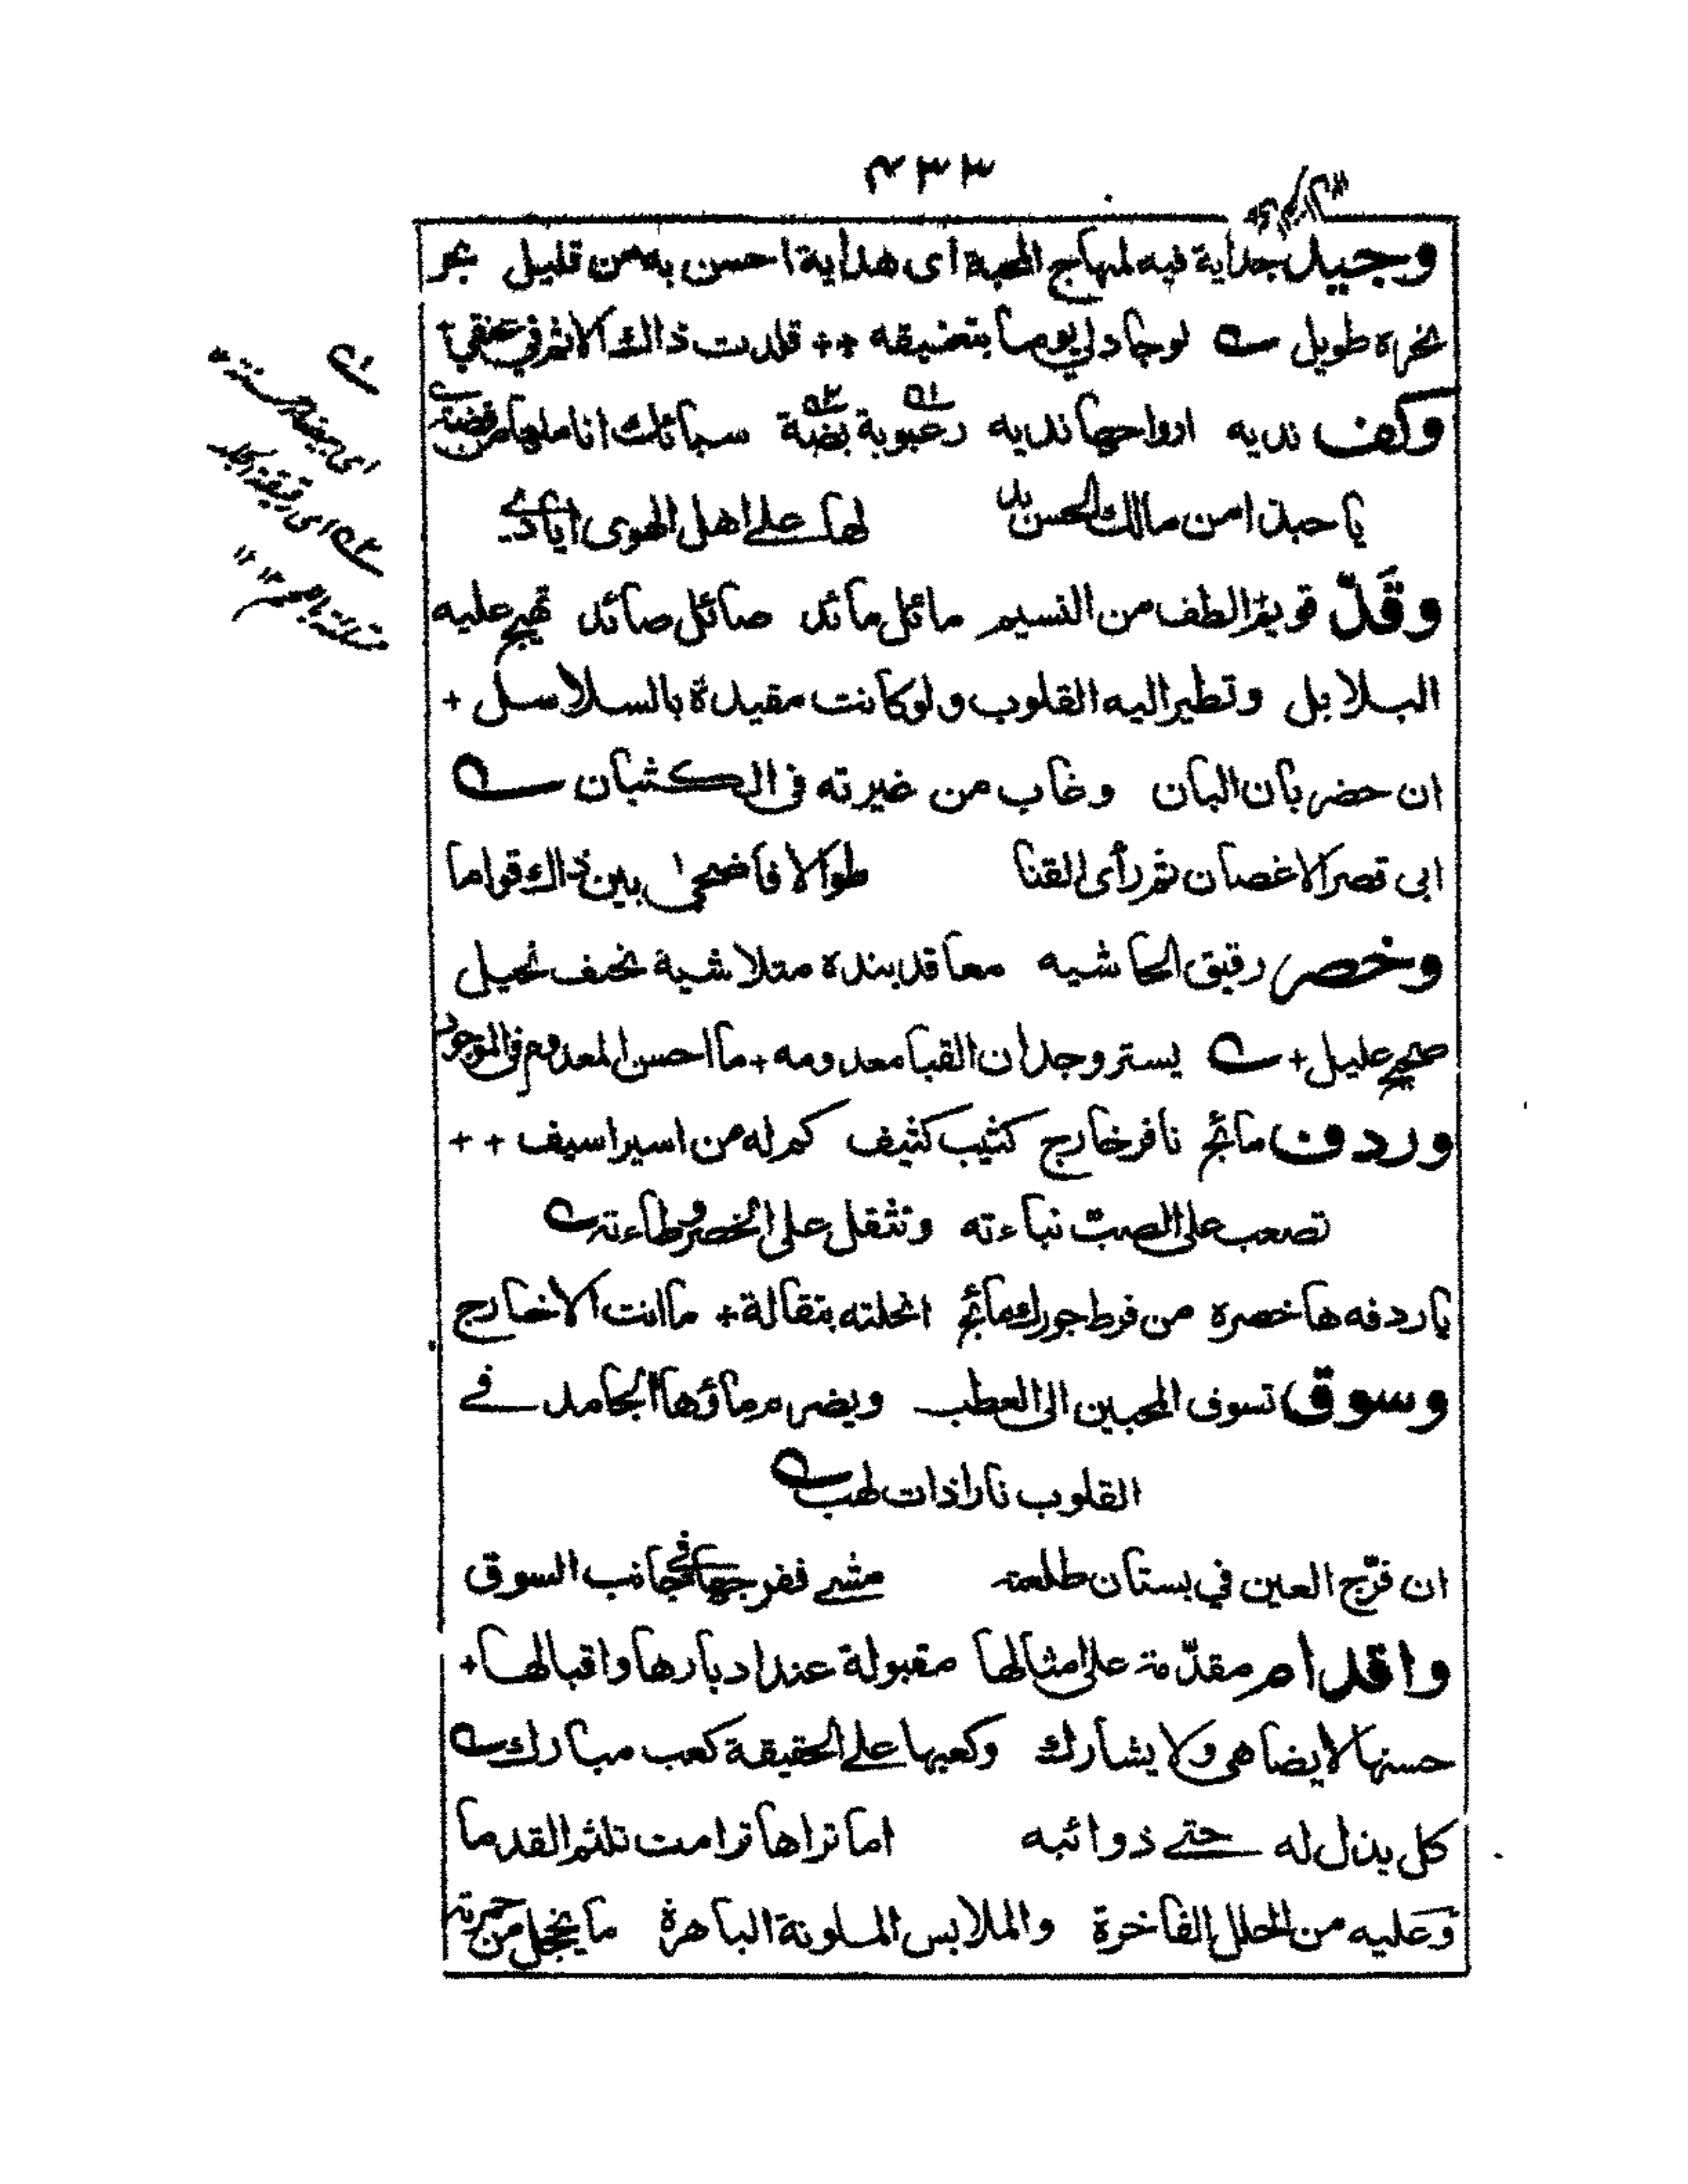 ٤٣٣
وجيد جداية فيه لمنهاج المحبة اى هداية احسن به من قليل بحر
نحره طويل لوجادلي يوما بتضيقه ++ قلدت ذاك الاثم في عنقي +
وكف نديه ارواحها نديه رعبوبة بضة سبائك اناملها من فضة
يا حبذا من مالك الحسن يد لها على اهل الهوى ايادي
وقدّ قويم الطف من النسيم مائل مائد صائل صائد تهيج عليه
البلابل وتطير اليه القلوب ولو كانت مقيدة بالسلاسل +
ان حضر بان البان وغاب من غيرته فى الكثبان
ابى قصر الاغصان ثم رأى القنا طوالا فاضحى بين ذاك قواما
وخصر رقيق الحاشيه معاقد بنده متلاشية نحيف نحيل
صحيح عليل + يستر وجدان القبا معدومه + ما احسن المعدوم فى الموجود
وردف مائج نافر خارج كثيب كثيف كم له من اسير اسيف ++
تصعب على الصبّ نباءته وتثقل على الخصر وطاءته
يا ردفه ها خصره من فرط جورك مائج انحلته بتقالة + ما انت الا خارج
وسوق تسوق المحبين الى العطب ويضرم ماؤها الجامد فے
القلوب نارا ذات لهب
ان فرّج العين في بستان طلعته مشے ففرجها فے جانب السوق
واقدام مقدّمة على امثالها مقبولة عند ادبارها واقبالها +
حسنها لايضاهى ولا يشارك وكعبها على الحقيقة كعب مبارك
كل يذل له حتے ذوائبه اما تراها ترامت تلثم القدما
وعليه من الحلل الفاخرة والملابس الملونة الباهرة ما يخجل من حمرته